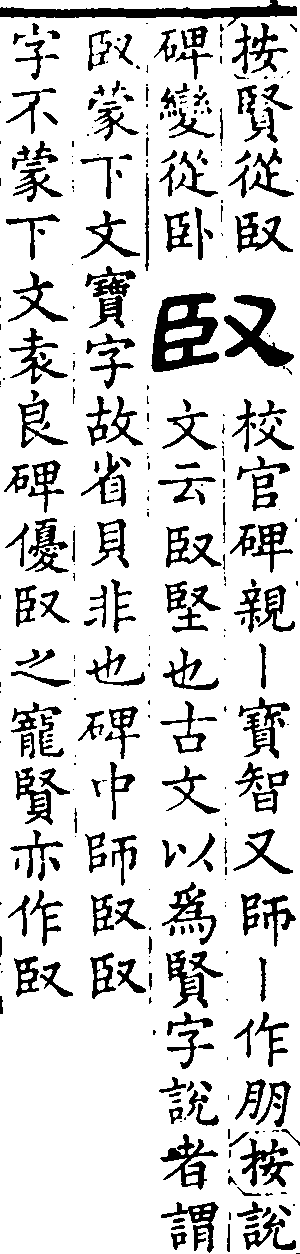 按賢從臤
碑變從卧
臤
校官碑親丨寶智又師丨作朋按說
文云臤堅也古文以爲賢字說者謂
臤蒙下文寶字故省貝非也碑中師臤臤
字不蒙下文袁良碑優臤之寵賢亦作臤